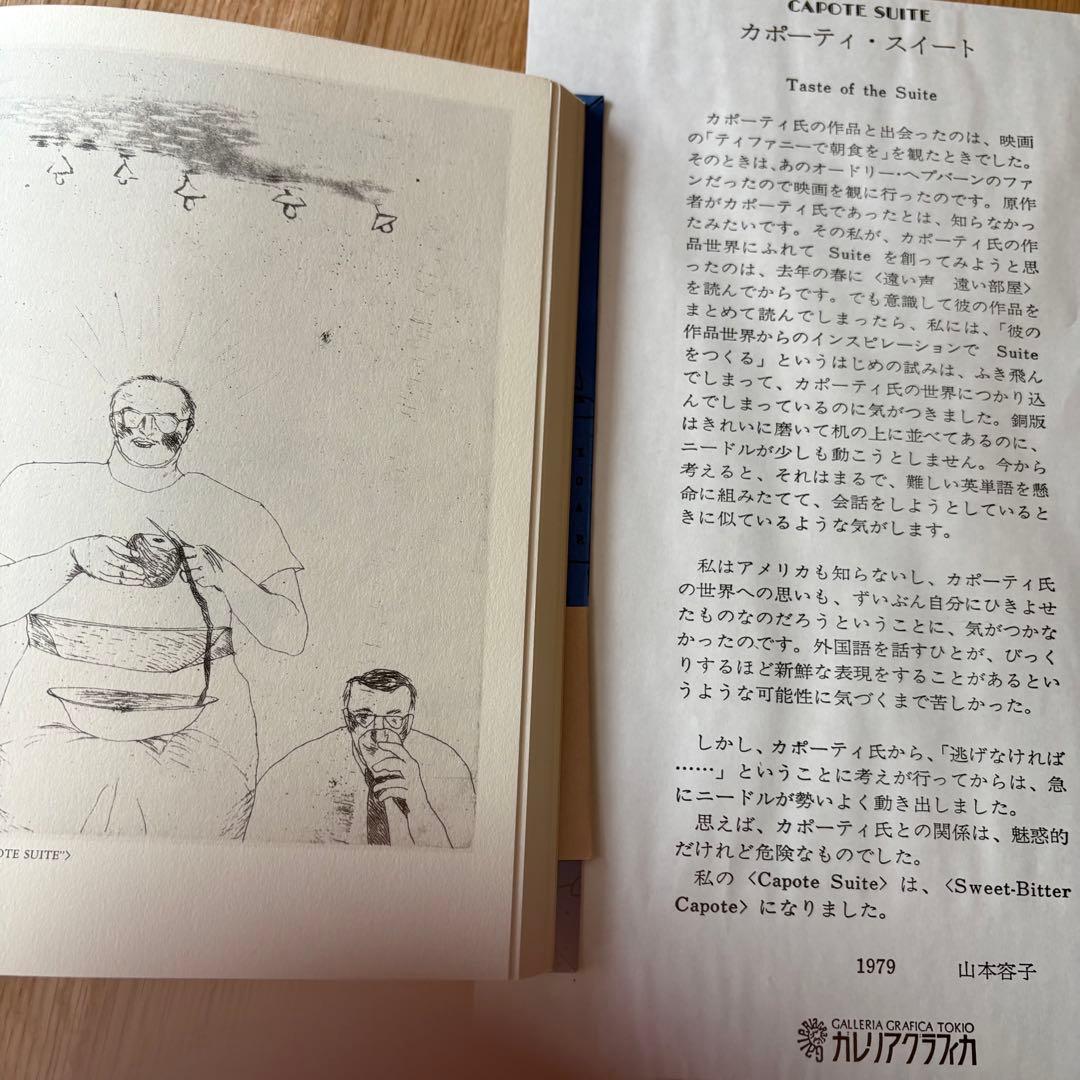 OTE SUITE”〉
CAPOTE SUITE
カポーティ・スイート
Taste of the Suite
カポーティ氏の作品と出会ったのは、映画
の「ティファニーで朝食を」を観たときでした。
そのときは、あのオードリー・ヘプバーンのファ
ンだったので映画を観に行ったのです。原作
者がカポーティ氏であったとは、知らなかっ
たみたいです。その私が、カポーティ氏の作
品世界にふれて Suite を創ってみようと思
ったのは、去年の春に〈遠い声 遠い部屋〉
を読んでからです。でも意識して彼の作品を
まとめて読んでしまったら、私には、「彼の
作品世界からのインスピレーションで Suite
をつくる」というはじめの試みは、ふき飛ん
でしまって、カポーティ氏の世界につかり込
んでしまっているのに気がつきました。銅版
はきれいに磨いて机の上に並べてあるのに、
ニードルが少しも動こうとしません。今から
考えると、それはまるで、難しい英単語を懸
命に組みたてて、会話をしようとしていると
きに似ているような気がします。
私はアメリカも知らないし、カポーティ氏
の世界への思いも、ずいぶん自分にひきよせ
たものなのだろうということに、気がつかな
かったのです。外国語を話すひとが、びっく
りするほど新鮮な表現をすることがあるとい
うような可能性に気づくまで苦しかった。
しかし、カポーティ氏から、「逃げなければ
……」ということに考えが行ってからは、急
にニードルが勢いよく動き出しました。
思えば、カポーティ氏との関係は、魅惑的
だけれど危険なものでした。
私の〈Capote Suite〉は、〈Sweet-Bitter
Capote〉になりました。
1979 山本容子
GALLERIA GRAFICA TOKIO
ガレリアグラフィカ